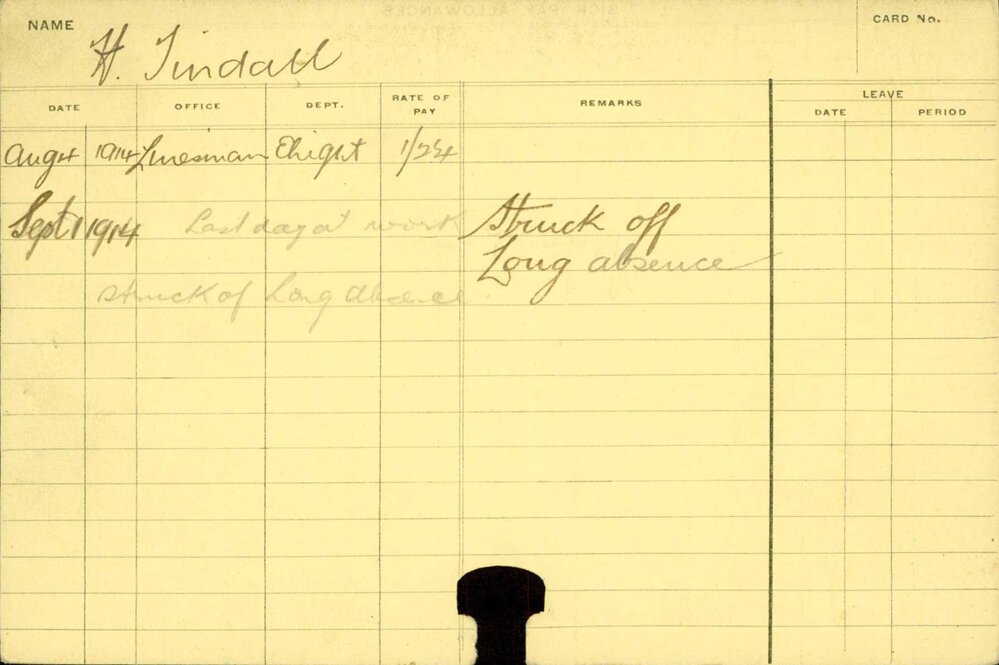 SICK PAY ALLOWANCES
NAME H. Tindall CARD No.
DATE OFFICE DEPT. RATE OF PAY REMARKS LEAVE
DATE PERIOD
Aug 4 1914 Linesman Elight
Sept 1 1914 Last day at work Struck off
Long absence
struck of Long absence